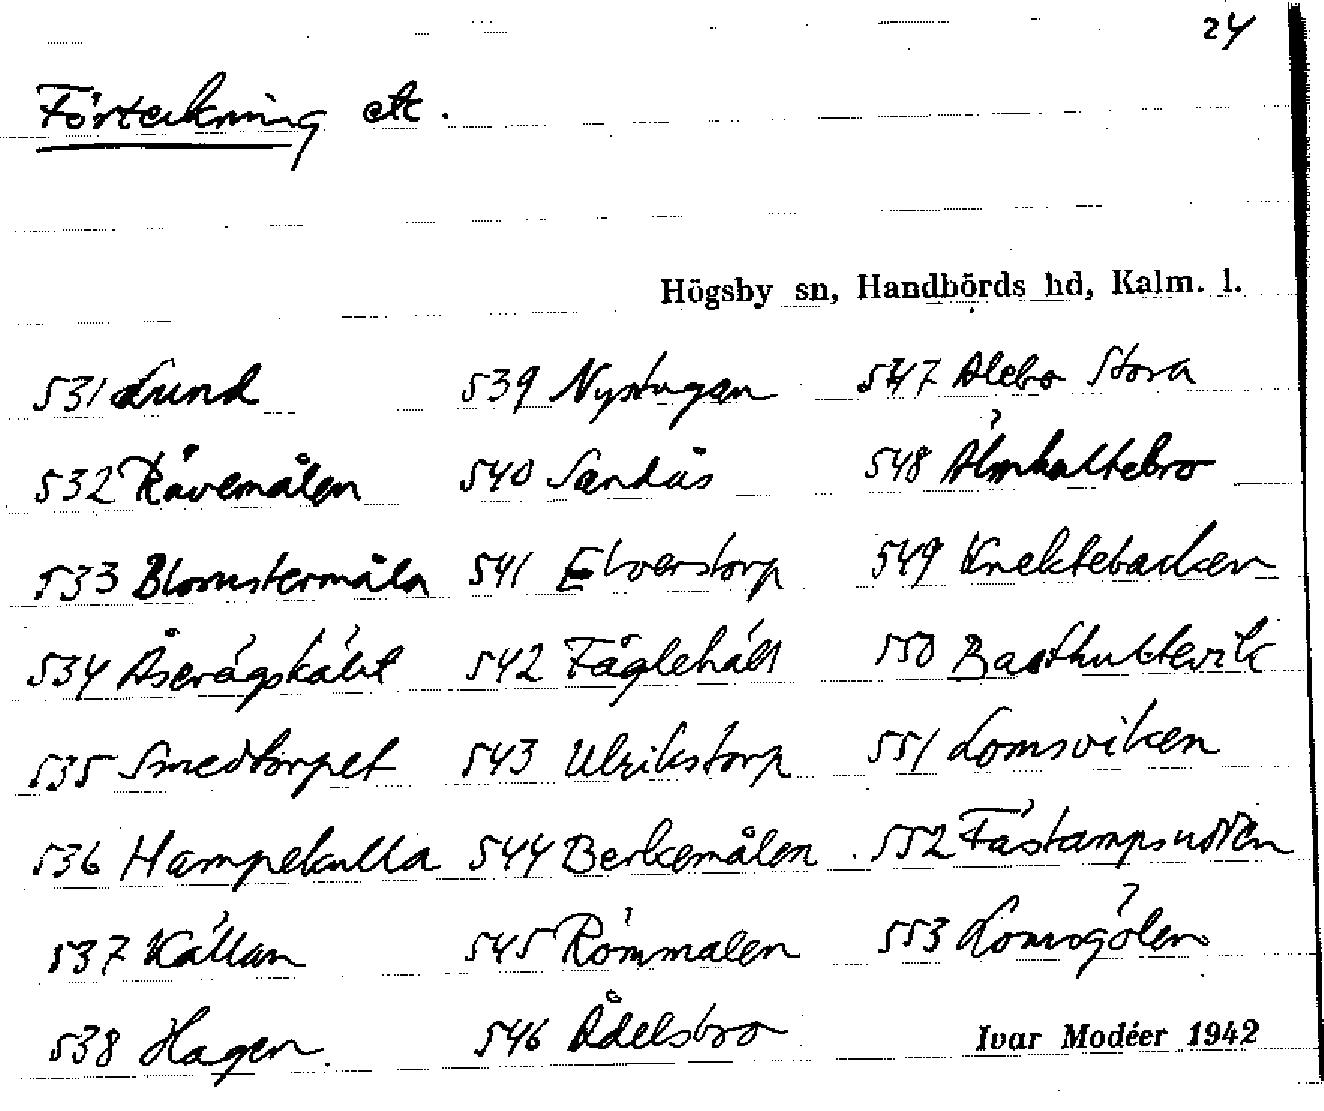 24
Förteckning etc.
Högsby sn, Handbörds hd, Kalm. l.
531 Lund 539 Nystugan 547 Alebo Stora
532 Råvemålen 540 Sandås 548 Älmhultebro
533 Blomstermåla 541 Elverstorp 549 Knektebacken
534 542 Fåglehält 550 Basthultevik
535 Smedtorpet 543 Ulrikstorp 551 Lomsviken
536 Hampekulla 544 Berkemålen 552
537 Källan 545 Römmalen 553 Lomsgölen
538 Hagen 546 Ådelsbro
Ivar Modéer 1942